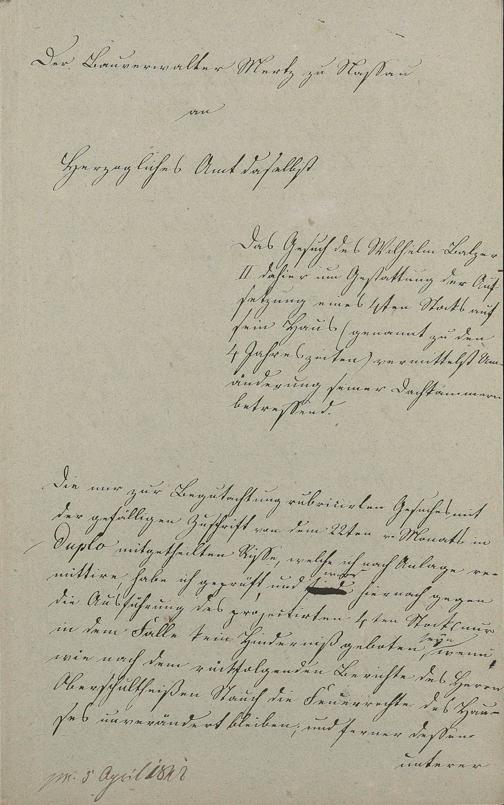 Der Bauverwalter Mertz zu Nassau
an
Herzogliches Amt daselbst
Das Gesuch des Wilhelm Balzer
II dahier um Gestattung der Auf
setzung eines 4ten Stocks auf
sein Haus (genannt zu den
4 Jahreszeiten) vermittelst Um
änderung seiner Dachkammern
betreffend.
Die mir zur Begutachtung rubricirten Gesuches mit
der gefälligen Zuschrift von dem 22ten v. Monats in
Duplo mitgetheilten Risse, welche ich nach Anlage re-
mittire habe ich geprüft, und hiernach gegen
die Ausführung des projectirten 4ten Stocks nur
in dem Falle kein Hinderniß geboten seyn, wenn
wie nach dem rückfolgenden Berichte des Herrn
Oberschultheißen Stauch die Feuerrechte des Hau-
ses unverändert bleiben, und ferner dessen
unterer
pr. 5 April